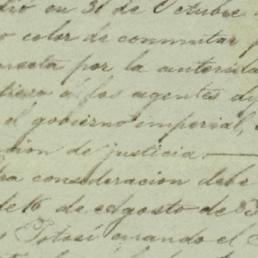 dio en 31 de Octubre
color de conmutar
por la autorida
á los agentes
el gobierno imperial,
cion de justicia
consideracion debe
de 16 de Agosto de 63
Potosí cuando el